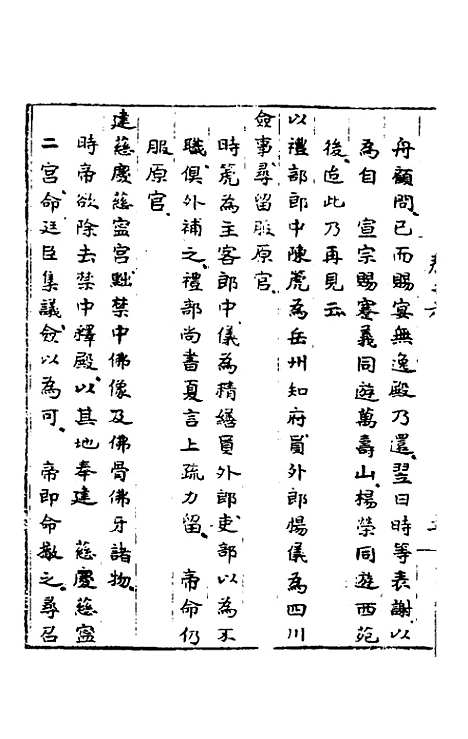 舟顧問已而賜宴無逸殿乃還翌日時等表謝以
為自　宣宗賜蹇義同遊萬壽山楊榮同遊西苑
後迨此乃再見云
以禮部郎中陳箎為岳州知府員外郎楊儀為四川
僉事尋留服原官
時箎為主客郎中儀為精繕員外郎吏部以為不
職俱外補之禮部尚書夏言上疏力留　帝命仍
服原官
建慈慶慈寧宮黜禁中佛像及佛骨佛牙諸物
時帝欲除去禁中釋殿以其地奉建　慈慶慈寧
二宮命廷臣集議僉以為可　帝即命撤之尋召